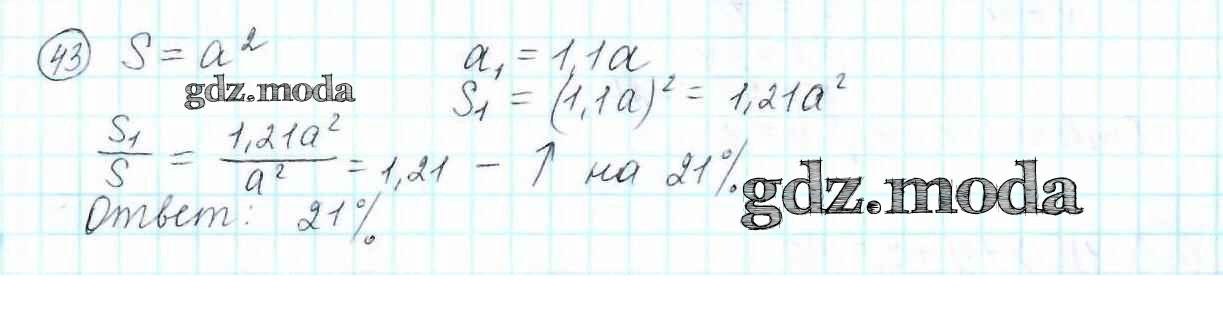 43 S = a² a₁ = 1,1a
gdz.moda S₁ = (1,1a)² = 1,21a²
S₁/S = 1,21a²/a² = 1,21 – ↑ на 21%
gdz.moda
Ответ: 21%